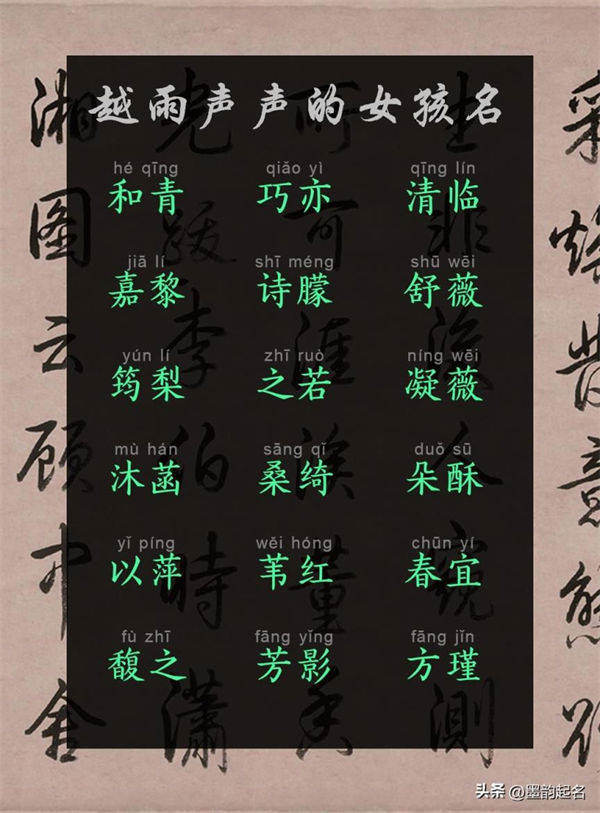 越雨声声的女孩名
hé qīng qiǎo yì qīng lín
和青 巧亦 清临
jiā lí shī méng shū wēi
嘉黎 诗朦 舒薇
yún lí zhī ruò níng wēi
筠梨 之若 凝薇
mù hán sāng qǐ duǒ sū
沐菡 桑绮 朵酥
yǐ píng wěi hóng chūn yí
以萍 苇红 春宜
fù zhī fāng yǐng fāng jǐn
馥之 芳影 方瑾
湘图云顾中金
头条 @墨韵起名